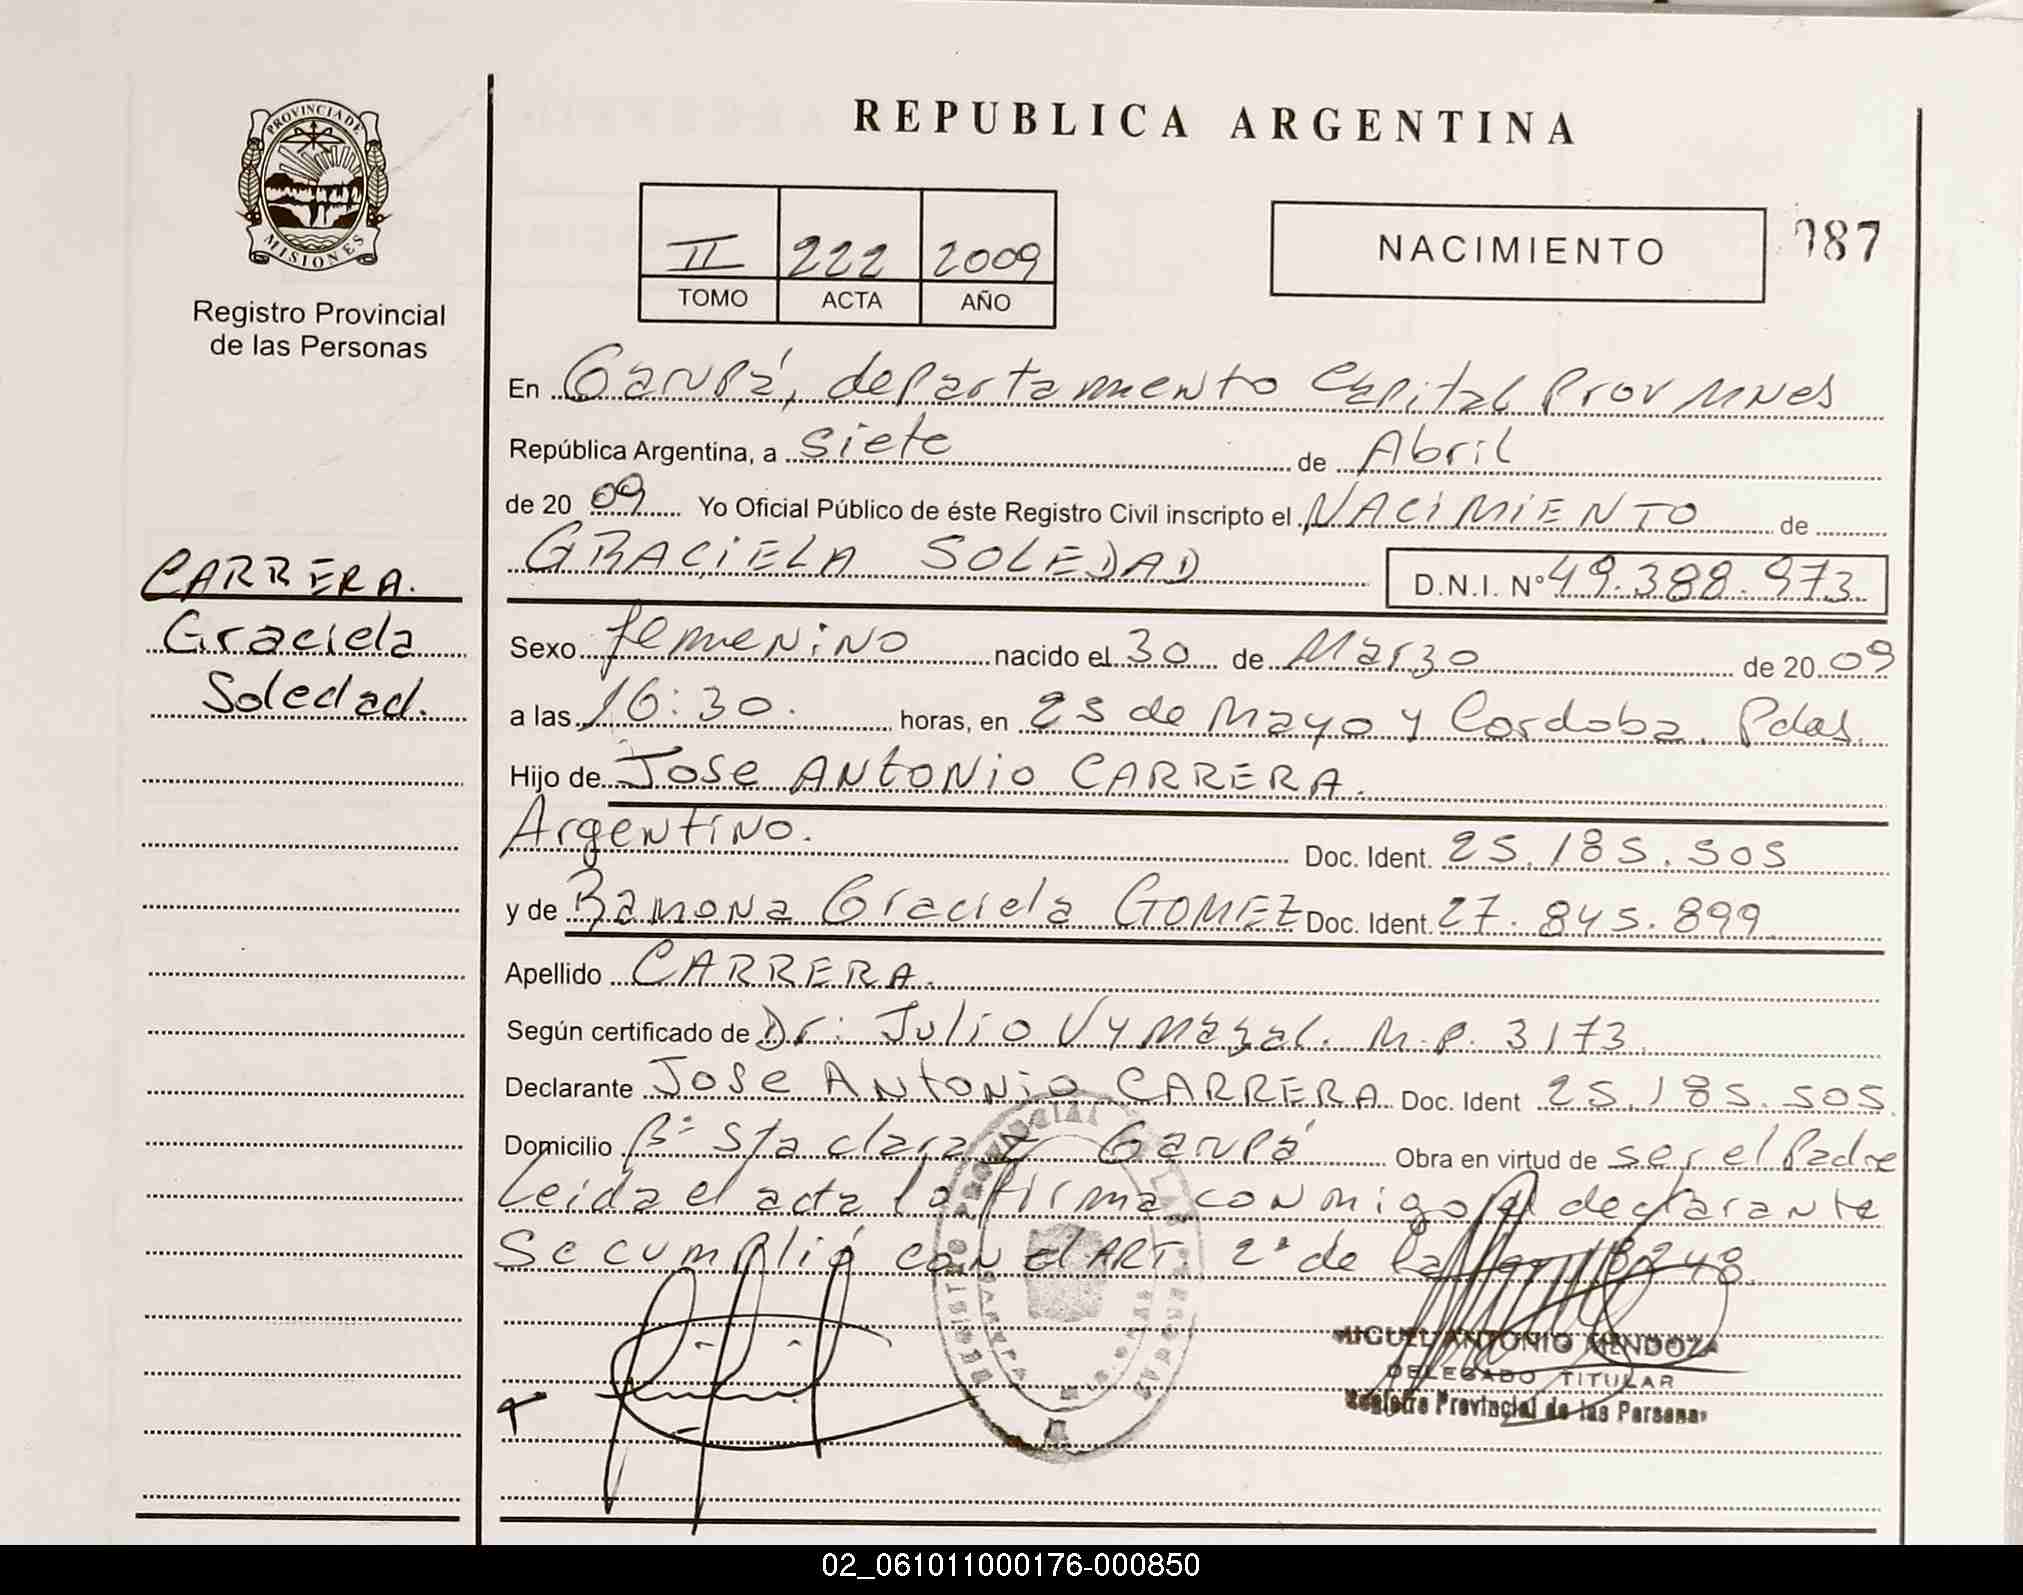 PROVINCIA DE
MISIONES
Registro Provincial
de las Personas
CARRERA.
Graciela
Soledad.
REPUBLICA ARGENTINA
II 222 2009
TOMO ACTA AÑO
NACIMIENTO
987
En Garupá, departamento Capital Prov Mnes
República Argentina, a siete de Abril
de 2009 Yo Oficial Público de éste Registro Civil inscripto el NACIMIENTO de
GRACIELA SOLEDAD D.N.I. Nº 49.388.973
Sexo femenino nacido el 30 de Marzo de 2009
a las 16:30. horas, en 25 de Mayo y Cordoba. Pdas.
Hijo de Jose ANtONio CARRERA.
Argentino. Doc. Ident. 25.185.505
y de Ramona Graciela GOMEZ Doc. Ident. 27.845.899
Apellido CARRERA.
Según certificado de Dr: Julio Vymazal. M.P. 3173
Declarante Jose ANtONio CARRERA Doc. Ident 25.185.505
Domicilio Bº Sta clara Garupá Obra en virtud de ser el Padre
Leida el acta la firma conmigo el declarante
Se cumplió con el ART. 2º de la 18248
MIGUEL ANTONIO MENDOZA
DELEGADO TITULAR
Registro Provincial de las Personas
02_061011000176-000850